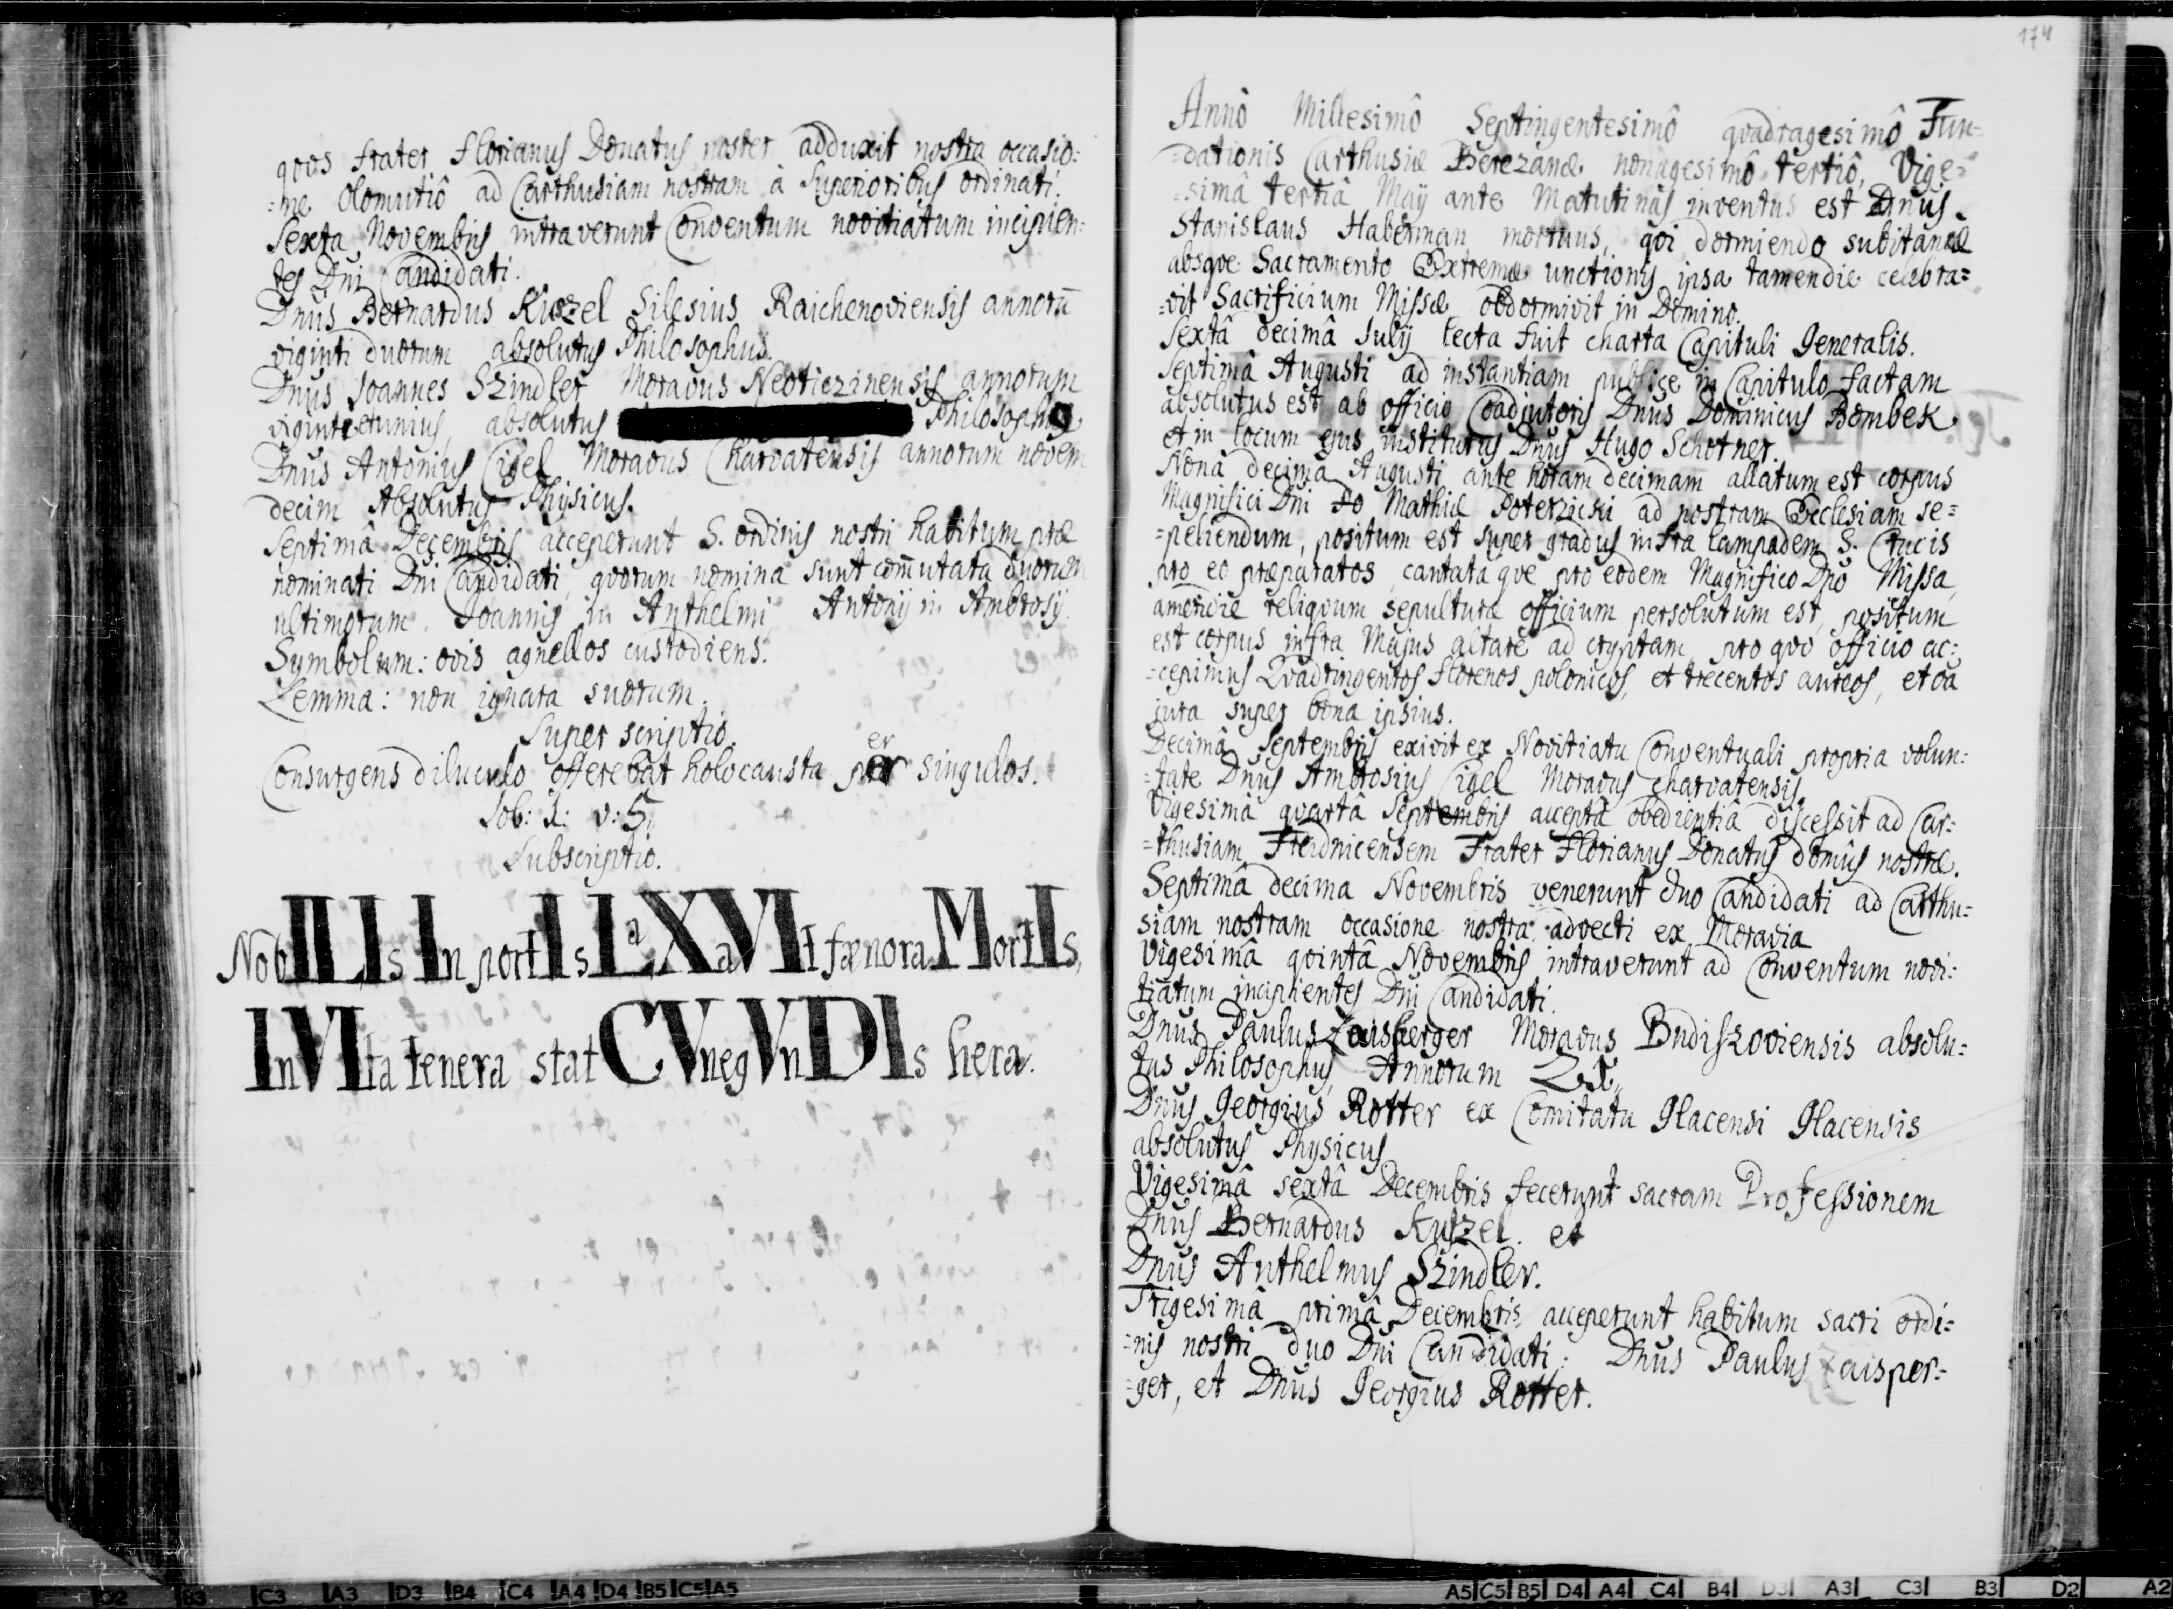 quos frater Florianus Donatus noster adduxit nostra occasio:
=ne Olomutiô ad Carthusiam nostram à Superioribus ordinati.
Sexta Novembris intraverunt Conventum novitiatum incipien:
tes Dni Candidati.
Dnûs Bernardus Kuszel Silesius Raichenoviensis annorū
viginti duorum absolutus Philosophus.
Dnus Joannes Szindler Moravus Neoticzinensis annorum
viginti et unius, absolutus Philosophus
Dnus Antonius Cigel Moravus Charvatensis annorum novem
decim Absolutus Physicus.
Septimâ Decembris acceperunt S. ordinis nostri habitum præ
nominati Dni Candidati, quorum nomina sunt com̄utata duorum
ultimorum. Joannis in Anthelmi, Antonij in Ambrosij.
Symbolum: ovis agnellos custodiens.
Lemma: non ignara suorum.
Super scriptio
er
Consurgens diluculo offerebat holocausta per singulos.
Job: 1: v: 5,
Subscriptio.
NobILIs In portIs LaXaVIt fænora MortIs,
InVIta tenera stat CVnegVnDIs hera.
174
Annô Millesimô Septingentesimô quadragesimô Fun-
=dationis Carthusiæ Berezanæ nonagesimô tertiô, Vige-
=simâ tertiâ Maij ante Matutinas inventus est Dnus
Stanislaus Haberman mortuus, qui dormiendo subitaneæ
absque Sacramento Extremæ unctionis ipsa tamen die celebra=
=vit Sacrificium Missæ obdormivit in Domino.
Sextâ decimâ Julij lecta fuit charta Capituli Generalis.
Septimâ Augusti ad instantiam publice in Capitulo factam
absolutus est ab officio Coadjutoris Dnus Dominicus Bombek
et in locum ejus institutus Dnus Hugo Schotner.
Nona decimâ Augusti ante horam decimam allatum est corpus
Magnifici Dni Do Mathiæ Poterzicki ad nostram Ecclesiam se=
=peliendum, positum est super gradus infra lampadem S. Crucis
pro eo præparatos, cantata que pro eodem Magnifico Dno Missa,
a meridie reliquum sepulturæ officium persolutum est, positum
est corpus infra Majus altare ad cryptam, pro quo officio ac:
=cepimus Quadringentos florenos polonicos, et trecentos aureos, et
jura super bona ipsius.
Decimâ Septembris exivit ex Novitiatu Conventuali propria volun:
=tate Dnus Ambrosius Cigel Moravus Charvatensis
Vigesimâ quartâ Septembris acceptâ obedientiâ discessit ad Car:
=thusiam Freidnicensem Frater Florianus Donatus domûs nostræ.
Septimâ decima Novembris venerunt duo Candidati ad Carthu=
siam nostram occasione nostra advecti ex Moravia
Vigesimâ quintâ Novembris intraverunt ad Conventum novi:
tiatum incipientes Dni Candidati.
Dnus Paulus Zaisperger Moravus Budiszoviensis absolu:
tus Philosophus, Annorum
Dnus Georgius Rotter ex Comitatu Glacensi Glacensis
absolutus Physicus
Vigesimâ sextâ Decembris fecerunt sacram Professionem
Dnus Bernardus Kuszel. et
Dnus Anthelmus Szindler.
Trigesimâ primâ Decembris acceperunt habitum sacri ordi=
=nis nostri duo Dni Candidati: Dnus Paulus Zaisper=
=ger, et Dnus Georgius Rotter.